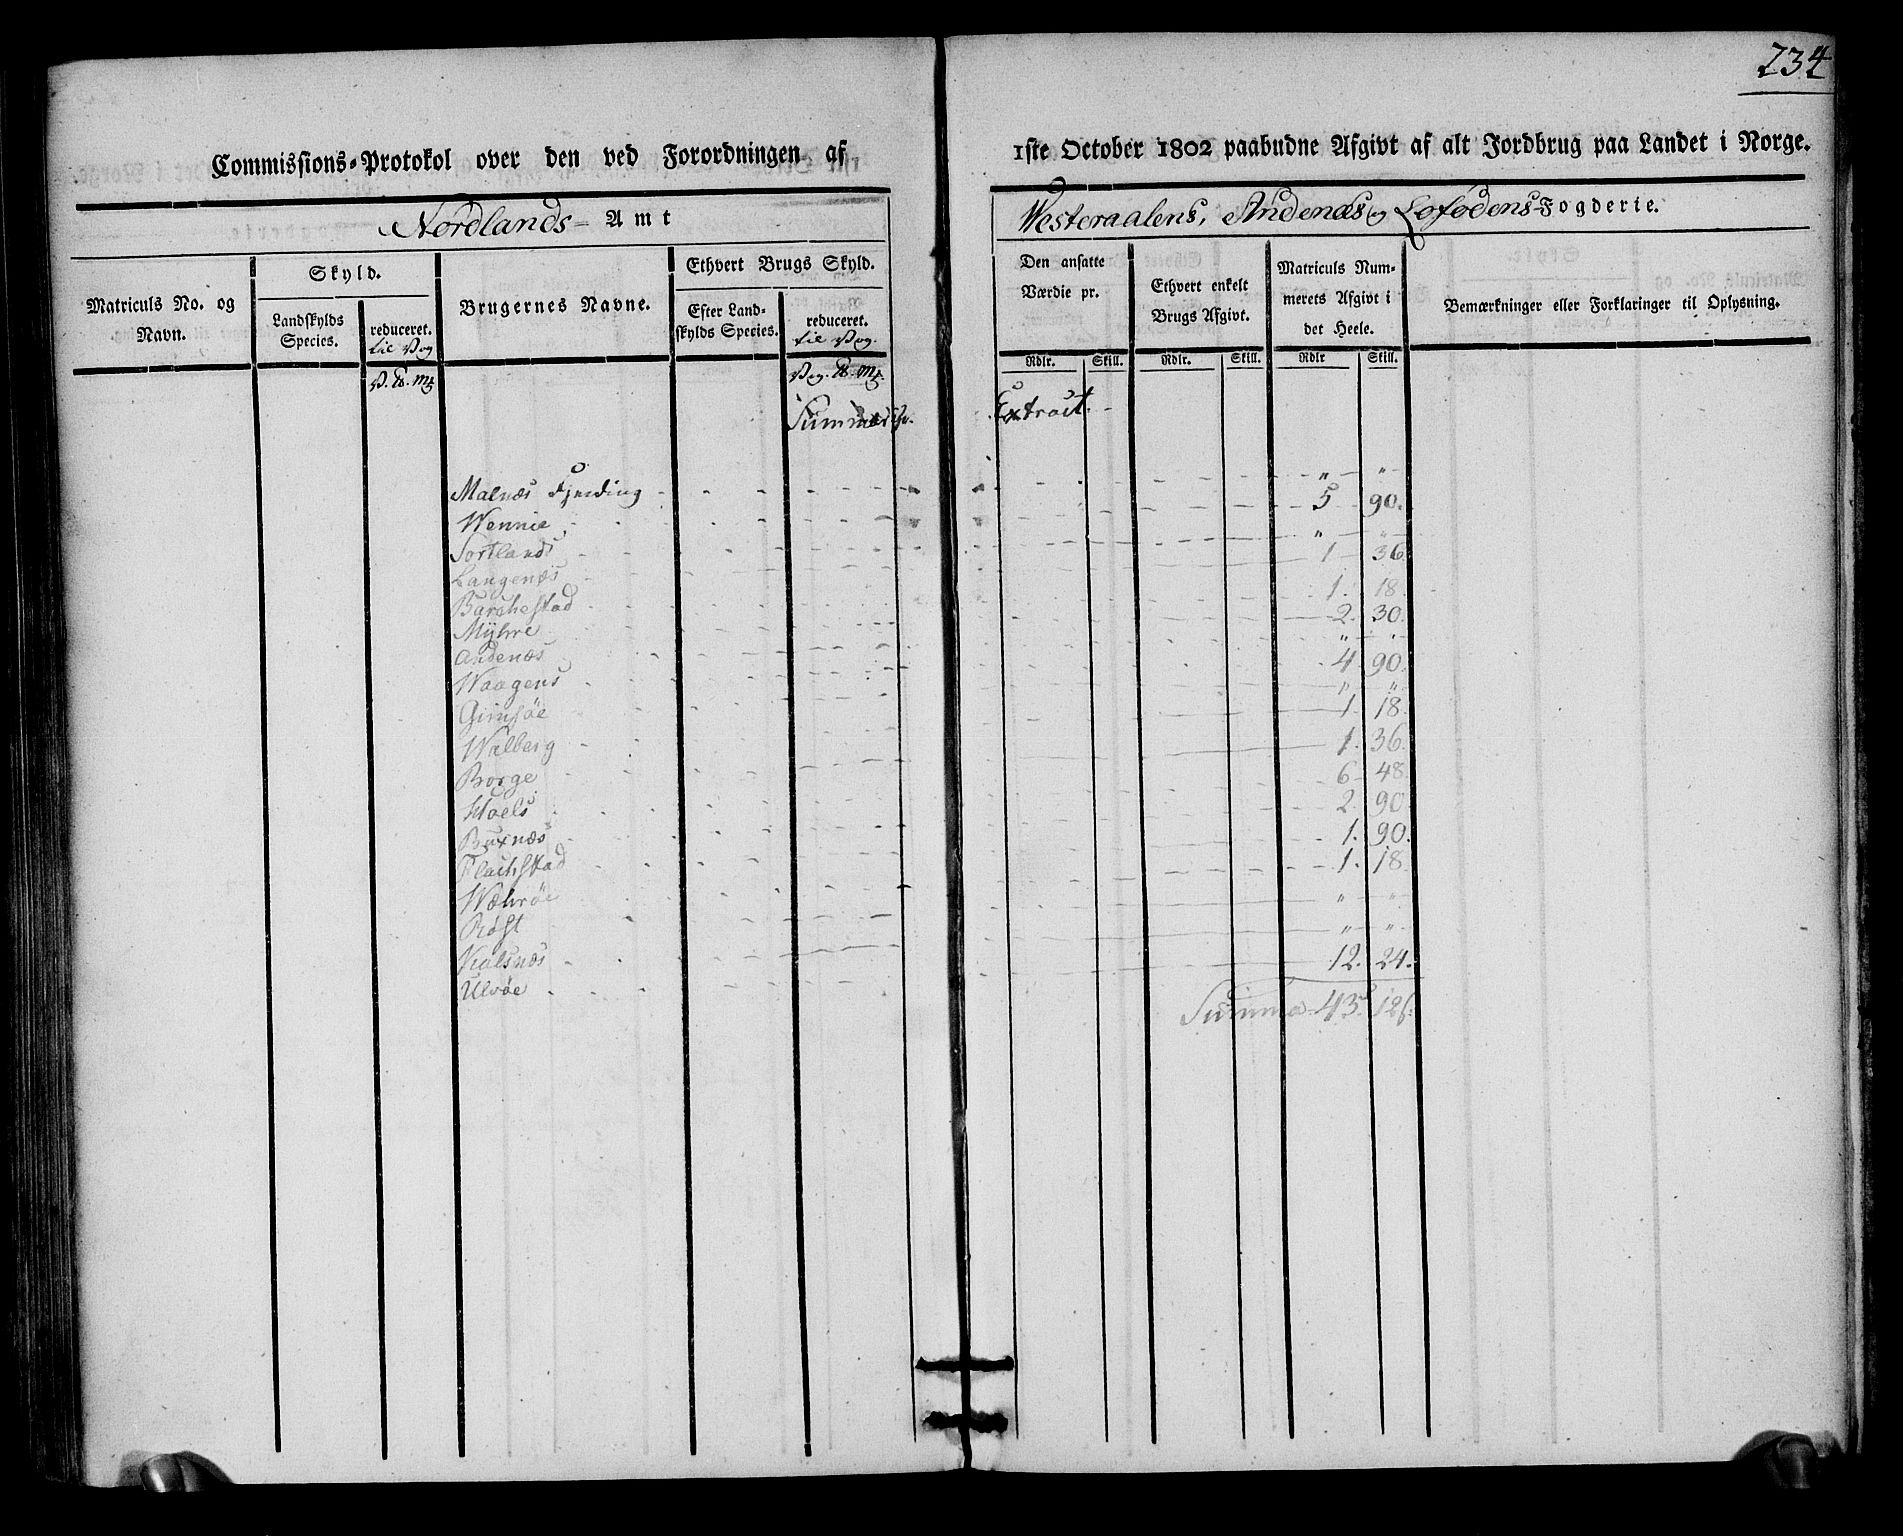 234
Commissions-Protokol over den ved Forordningen af 1ste October 1802 paabudne Afgivt af alt Jordbrug paa Landet i Norge.
Nordlands Amt
Westeraalens, Andenæs og Lofodens Fogderie.
Matriculs No. og Navn.
Skyld.
Landskylds Species.
reduceret. til Vog
V. ℔. mk
Brugernes Navne.
Ethvert Brugs Skyld.
Efter Landskylds Species.
reduceret. til Vog.
Vog. ℔. mk.
Den ansatte Værdie pr.
Rdlr. Skill.
Ethvert enkelt Brugs Afgivt.
Rdlr. Skill.
Matriculs Nummerets Afgivt i det Heele.
Rdlr Skill.
Bemærkninger eller Forklaringer til Oplysning.
Extract.
Malnæs Fjerding " "
Wennie 5 90.
Sortlands " "
Langenæs 1 36
Barchestad 1. 18
Myhre 2. 30.
Andenæs " "
Waagens 4 90.
Gimsøe " "
Walberg 1 18.
Borge 1. 36.
Hoels 6 48
Buxnæs 2. 90
Flachstad 1. 90.
Wæhrøe 1. 18
Røst " "
" "
Ulvøe 12. 24.
Summa 43 12 s.